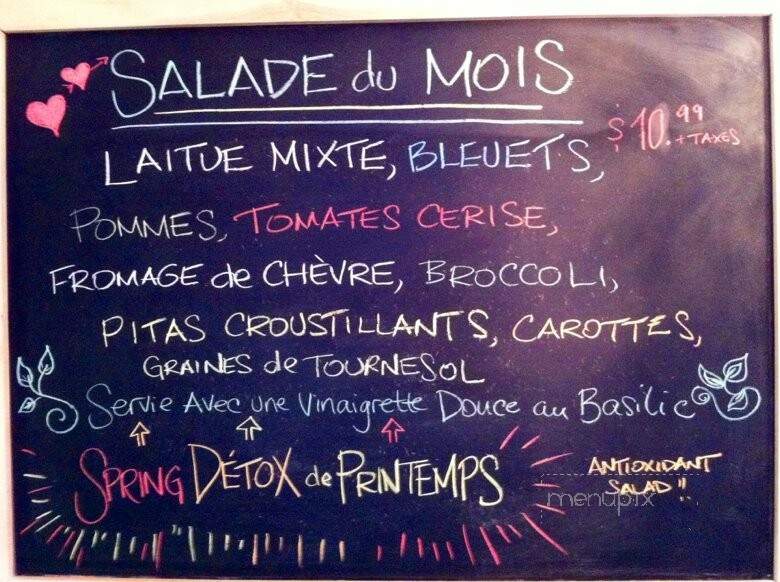 SALADE du MOIS
$10.99 + TAXES
LAITUE MIXTE, BLEUETS,
POMMES, TOMATES CERISE,
FROMAGE de CHÈVRE, BROCCOLI,
PITAS CROUSTILLANTS, CAROTTES,
GRAINES de TOURNESOL
Servie Avec une Vinaigrette Douce au Basilic
SPRING DÉTOX de PRINTEMPS
ANTIOXIDANT
SALAD!!
menupix